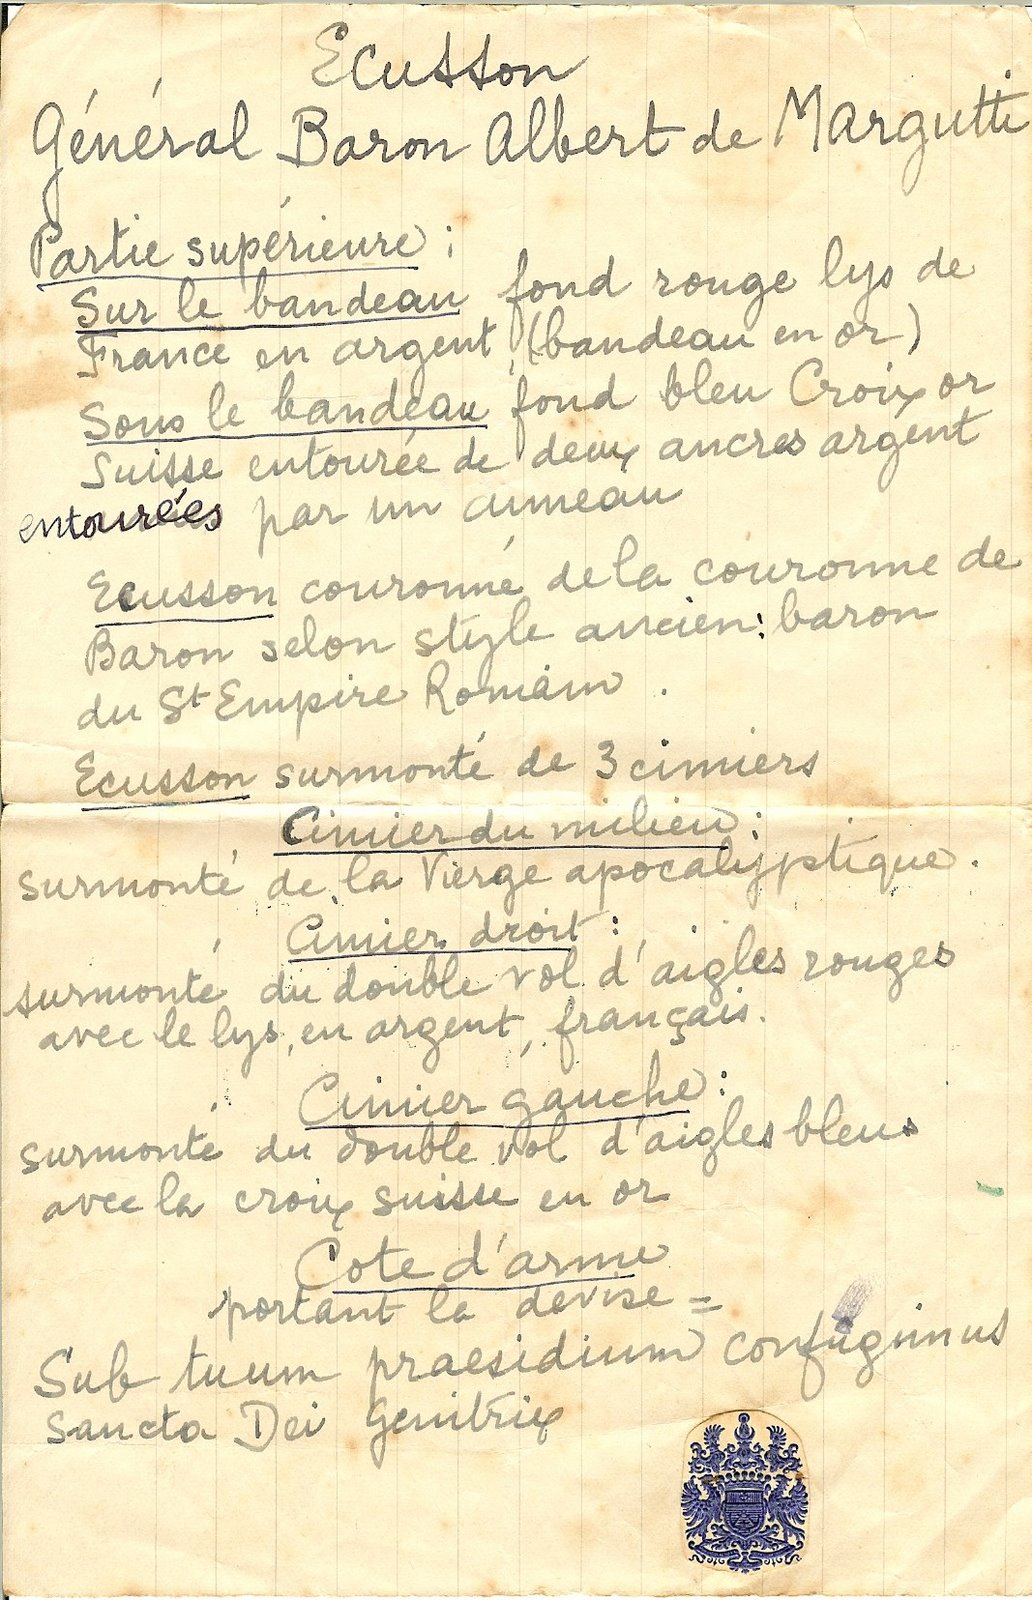 Ecusson
Général Baron Albert de Margutti
Partie supérieure :
Sur le bandeau fond rouge lys de
France en argent (bandeau en or)
Sous le bandeau fond bleu Croix or
Suisse entourée de deux ancres argent
entourées par un anneau
Ecusson couronné de la couronne de
Baron selon style ancien : baron
du St Empire Romain .
Ecusson surmonté de 3 cimiers
Cimier du milieu :
surmonté de la Vierge apocalyptique .
Cimier droit :
surmonté du double vol d'aigles rouges
avec le lys, en argent, français.
Cimier gauche :
surmonté du double vol d'aigles bleus
avec la croix suisse en or
Cote d'arme
portant la devise =
Sub tuum praesidium confugimus
Sancta Dei Genitrix